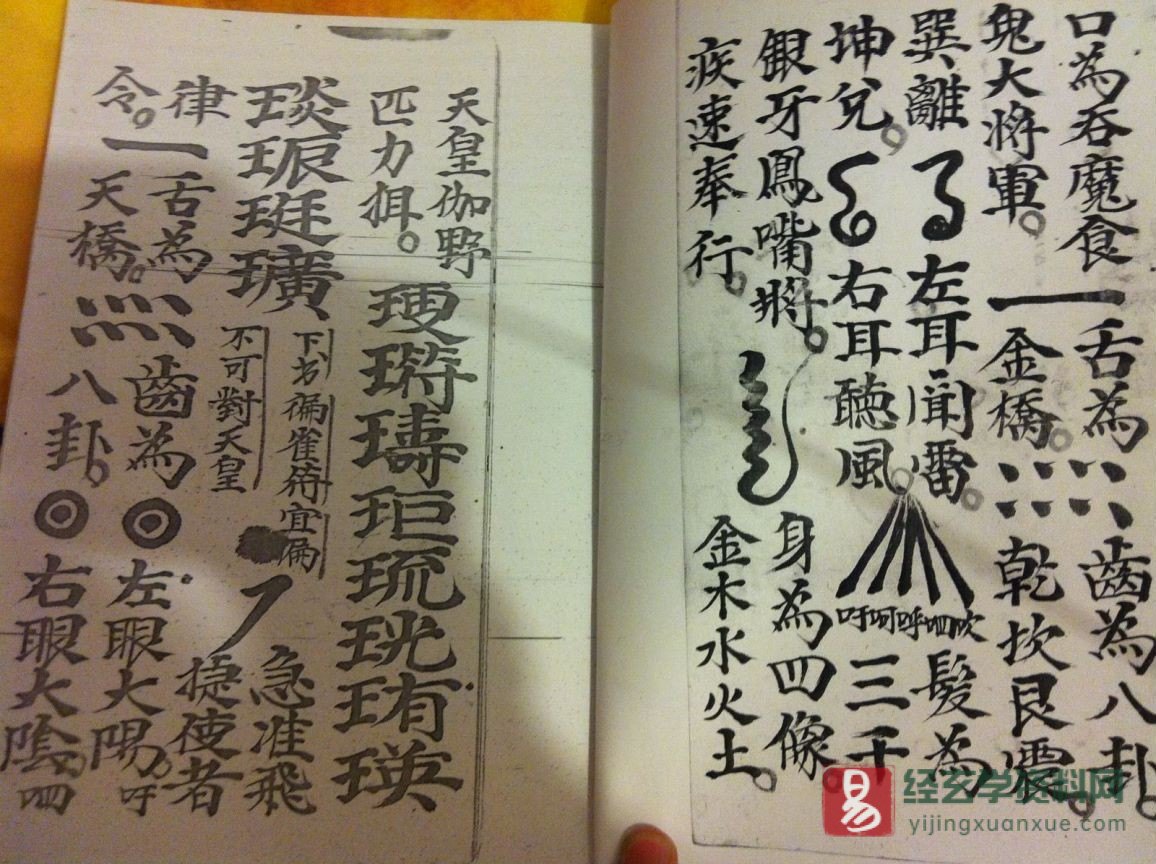 口為吞魔食
舌為
齒為八卦。
鬼大將軍。
一
金橋。
乾坎艮震。
巽離
左耳聞雷。
髮為
坤兌。
右耳聽風。
吁呵呼呬吹
三千
銀牙鳳嘴將。
身為四像。
疾速奉行。
金木水火土。
天皇伽野
匹力
琉珖珛瑛
琰
珽
下书偏雀符宜偏
不可對天皇
急准飛
捷使者
律
舌為
齒為
左眼大陽。吁
令。
一
天橋。
八卦。
右眼大陰。呬
易
经玄学资料网
yijingxuanxue.com